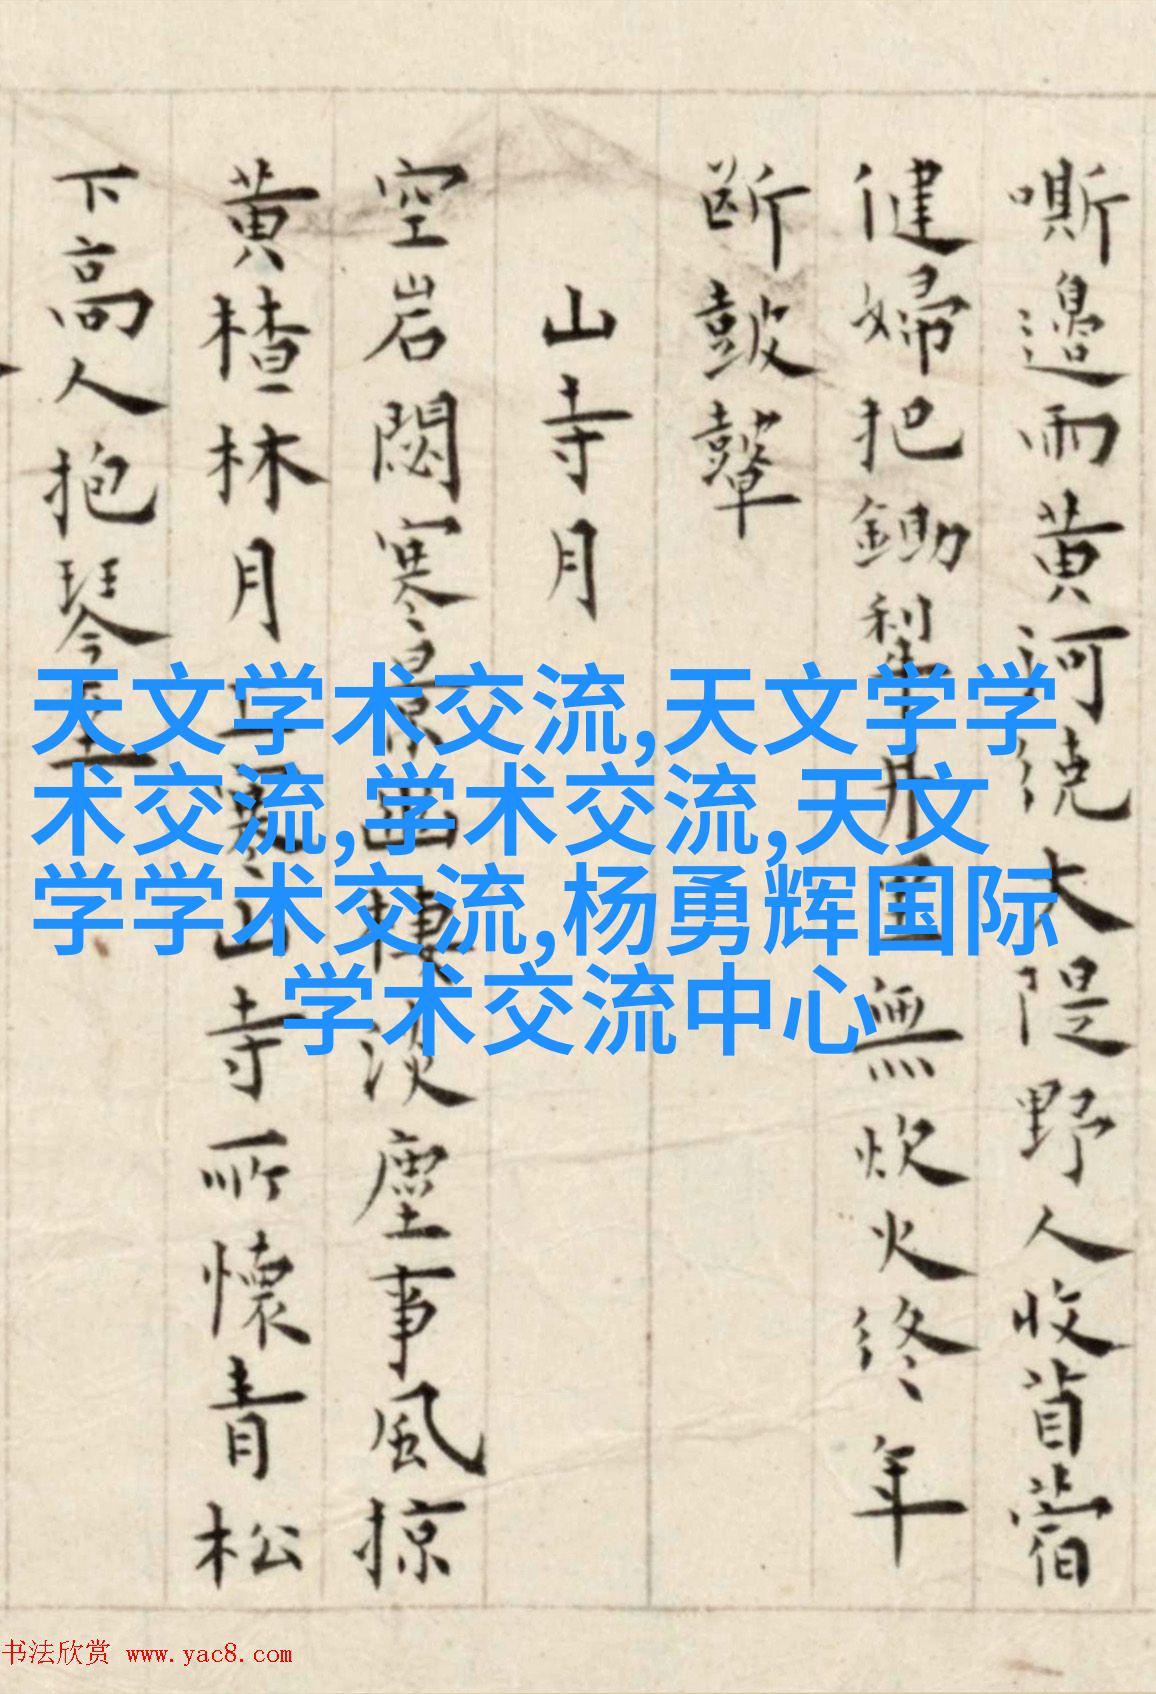 嘶邉雨黄河绕大隄野人收苜蓿
健婦把鋤犁
無炊火終年
断鼓鼙
山寺月
空岩閟寒景幽棲淡塵事風掠
黄楂林月上寒山寺所懷青松
下高人抱琴至
天文学术交流,天文学学
术交流,学术交流,天文
学学术交流,杨勇辉国际
学术交流中心
书法欣赏 www.yac8.com